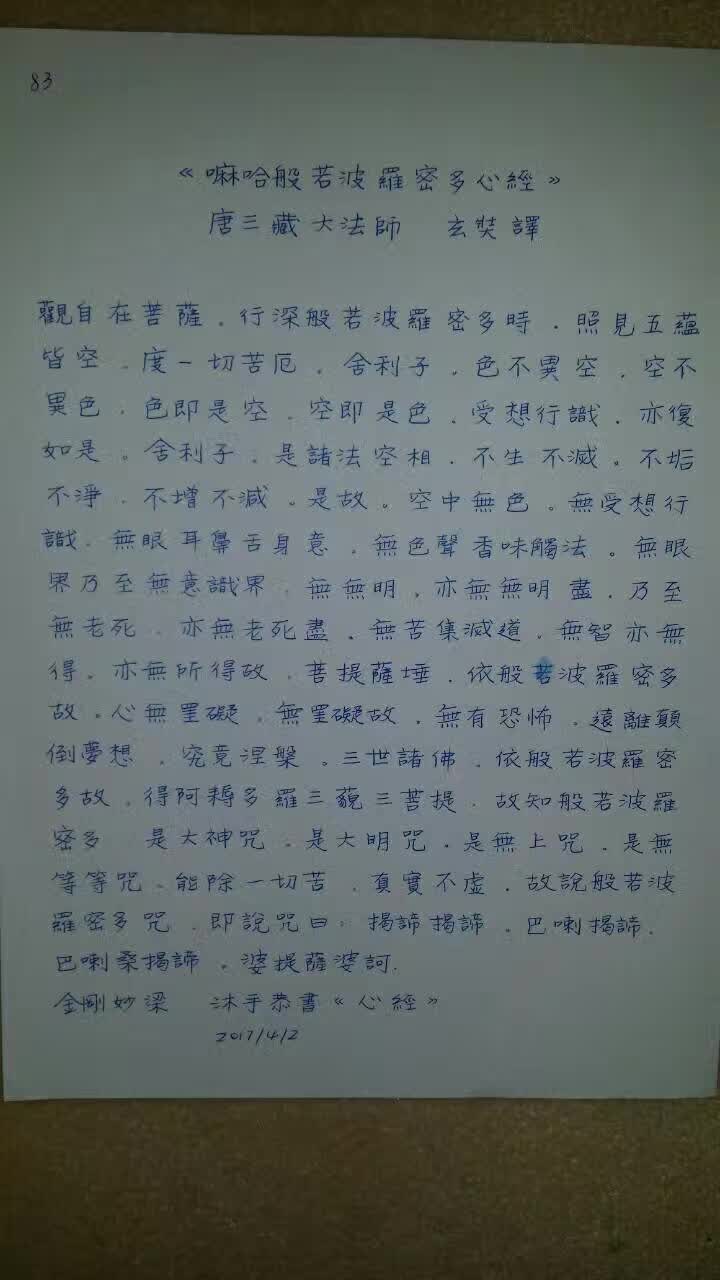 83
《嘛哈般若波羅密多心經》
唐三藏大法師 玄奘譯
觀自在菩薩。行深般若波羅密多時．照見五蘊
皆空．度一切苦厄。舍利子．色不異空．空不
異色．色即是空．空即是色．受想行識．亦復
如是。舍利子．是諸法空相．不生不滅。不垢
不淨．不增不減。是故。空中無色。無受想行
識．無眼耳鼻舌身意．無色聲香味觸法。無眼
界乃至無意識界．無無明．亦無無明盡．乃至
無老死．亦無老死盡．無苦集滅道．無智亦無
得。亦無所得故．菩提薩埵．依般若波羅密多
故。心無罣礙．無罣礙故．無有恐怖．遠離顛
倒夢想．究竟涅槃。三世諸佛．依般若波羅密
多故．得阿耨多羅三藐三菩提．故知般若波羅
密多 是大神咒．是大明咒．是無上咒．是無
等等咒．能除一切苦．真實不虛．故說般若波
羅密多咒．即說咒曰：揭諦揭諦．巴喇揭諦．
巴喇桑揭諦．婆提薩婆訶．
金剛妙梁 沐手恭書《心經》
2017/4/2